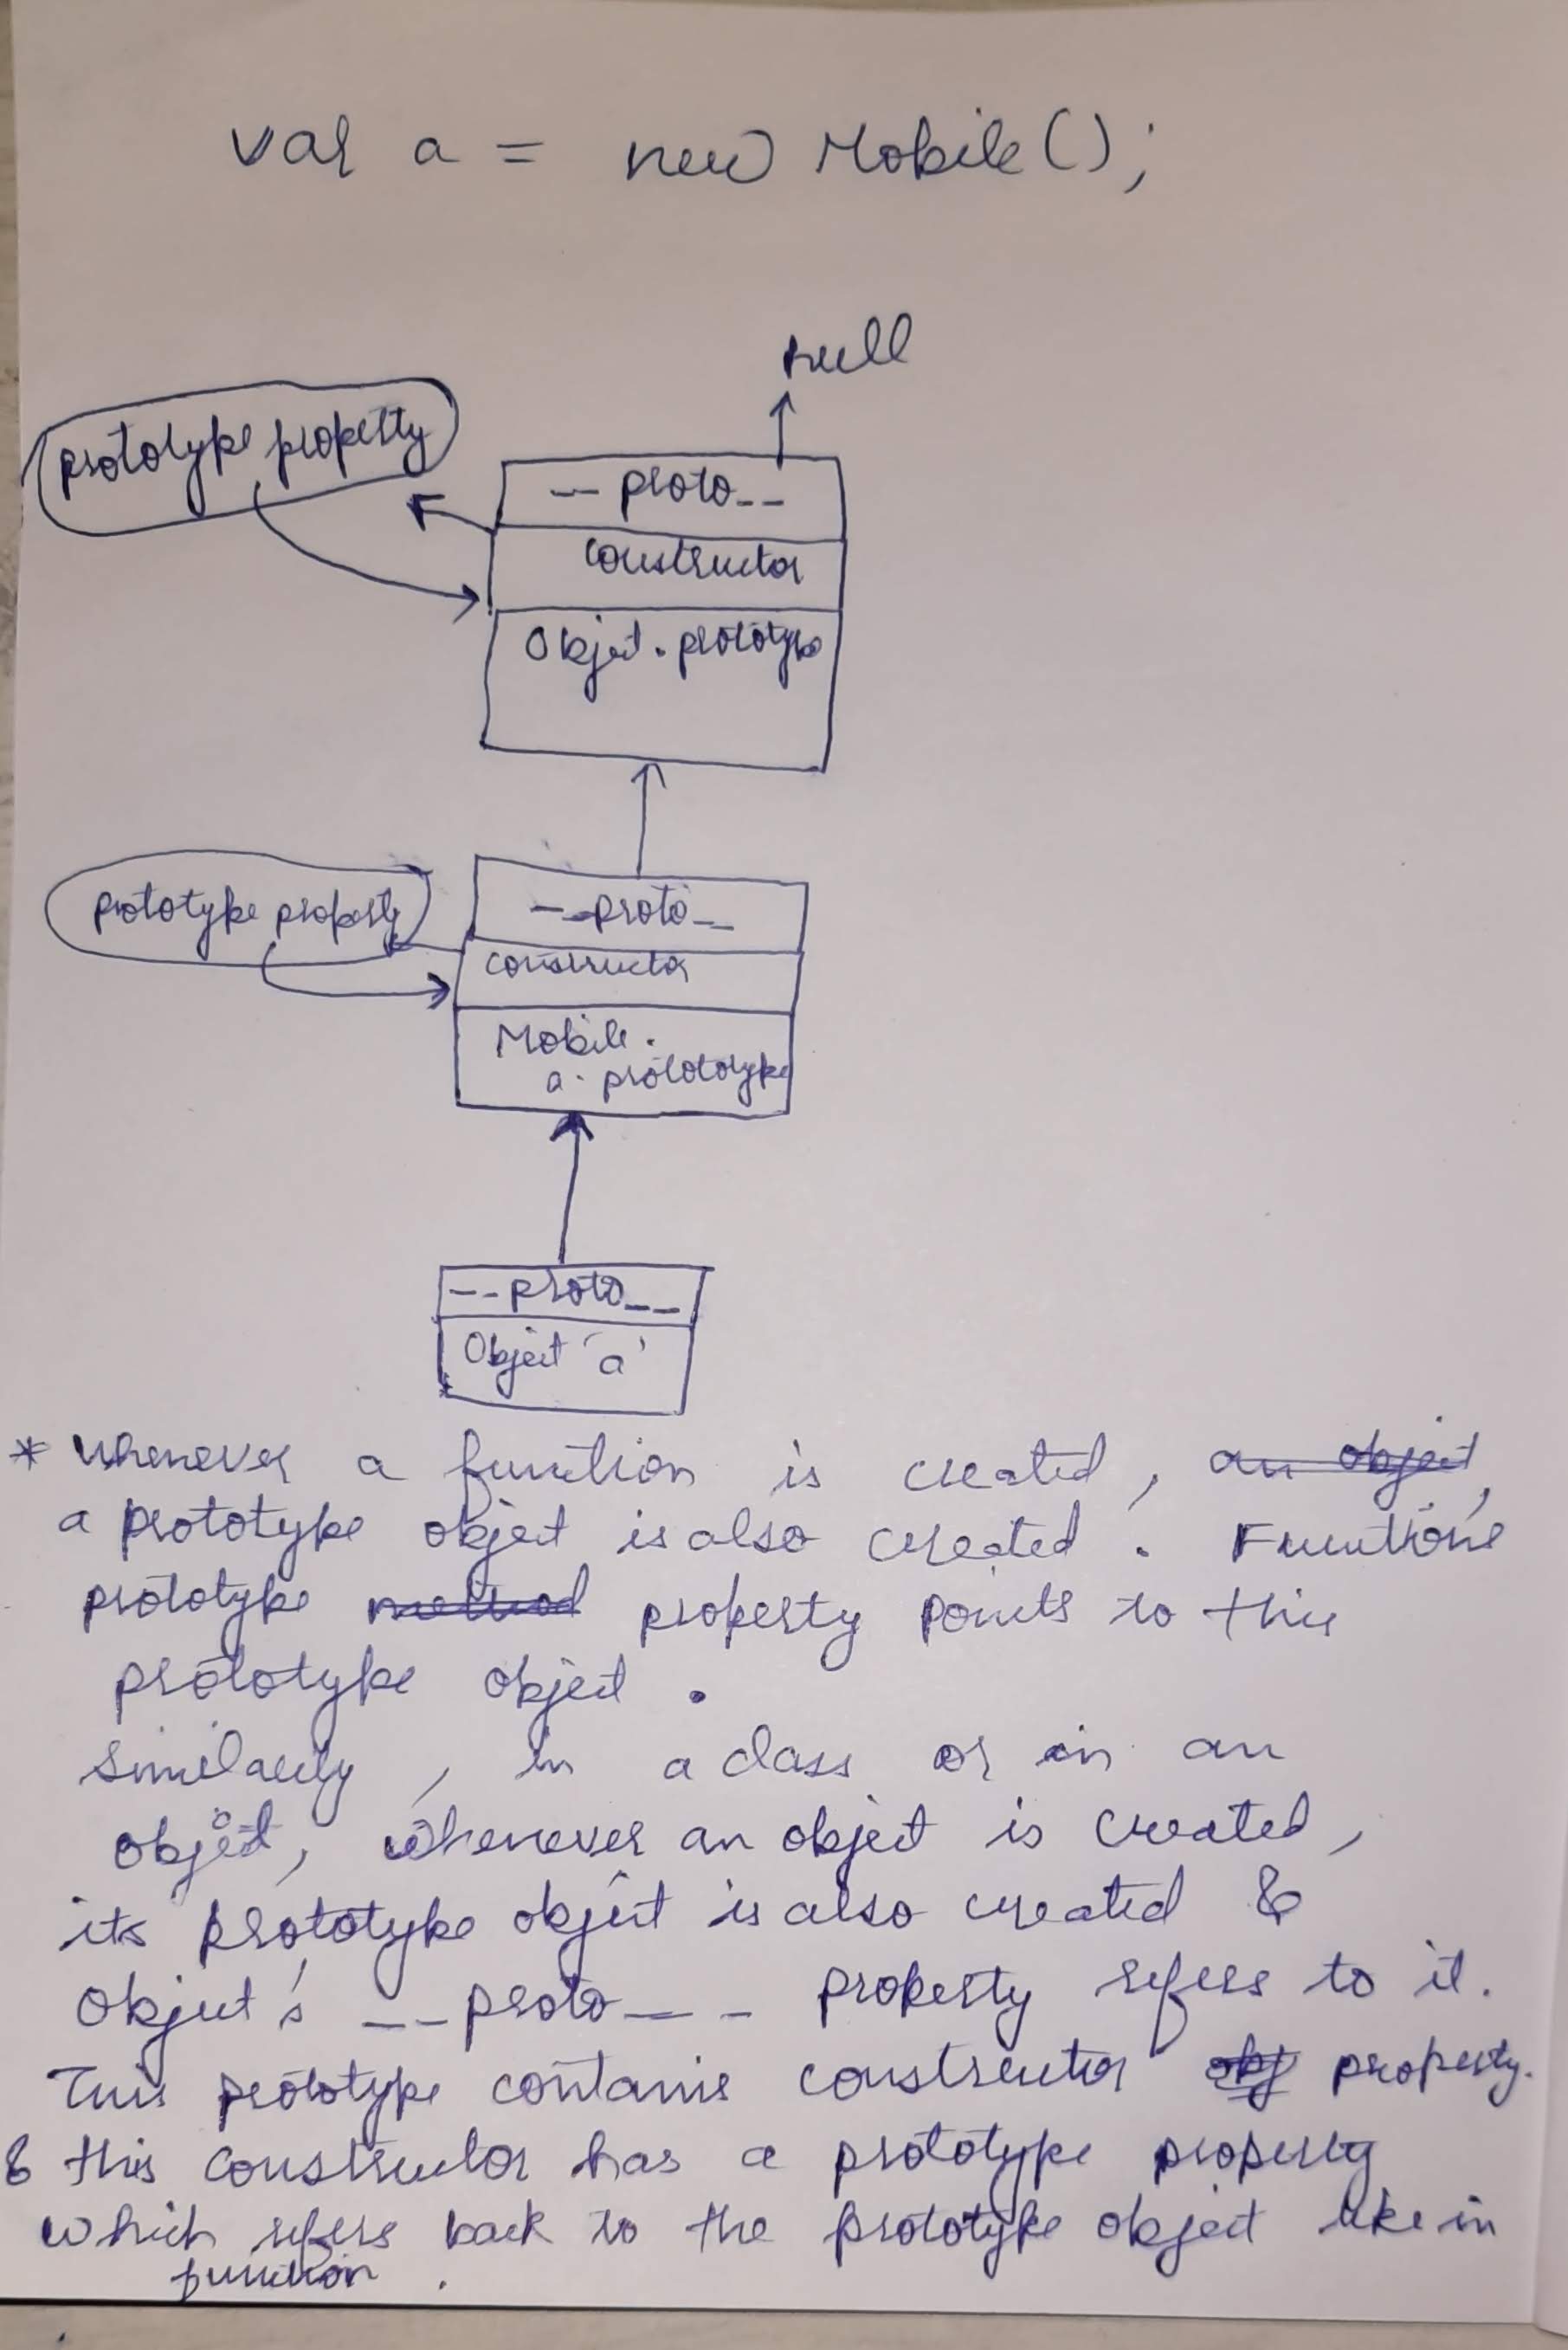 var a = new Mobile();
null
prototype property
__proto__
constructor
Object.prototype
prototype property
__proto__
constructor
Mobile.
a. prototoype
__proto__
Object 'a'
* Whenever a function is created, an object,
a prototype object is also created. Function's
prototype method property points to this
prototype object.
Similarly, in a class or in an
object, whenever an object is created,
its prototype object is also created &
Object's __proto__ property refers to it.
This prototype contains constructor obj property.
& this constructor has a prototype property
which refers back to the prototype object like in
function.